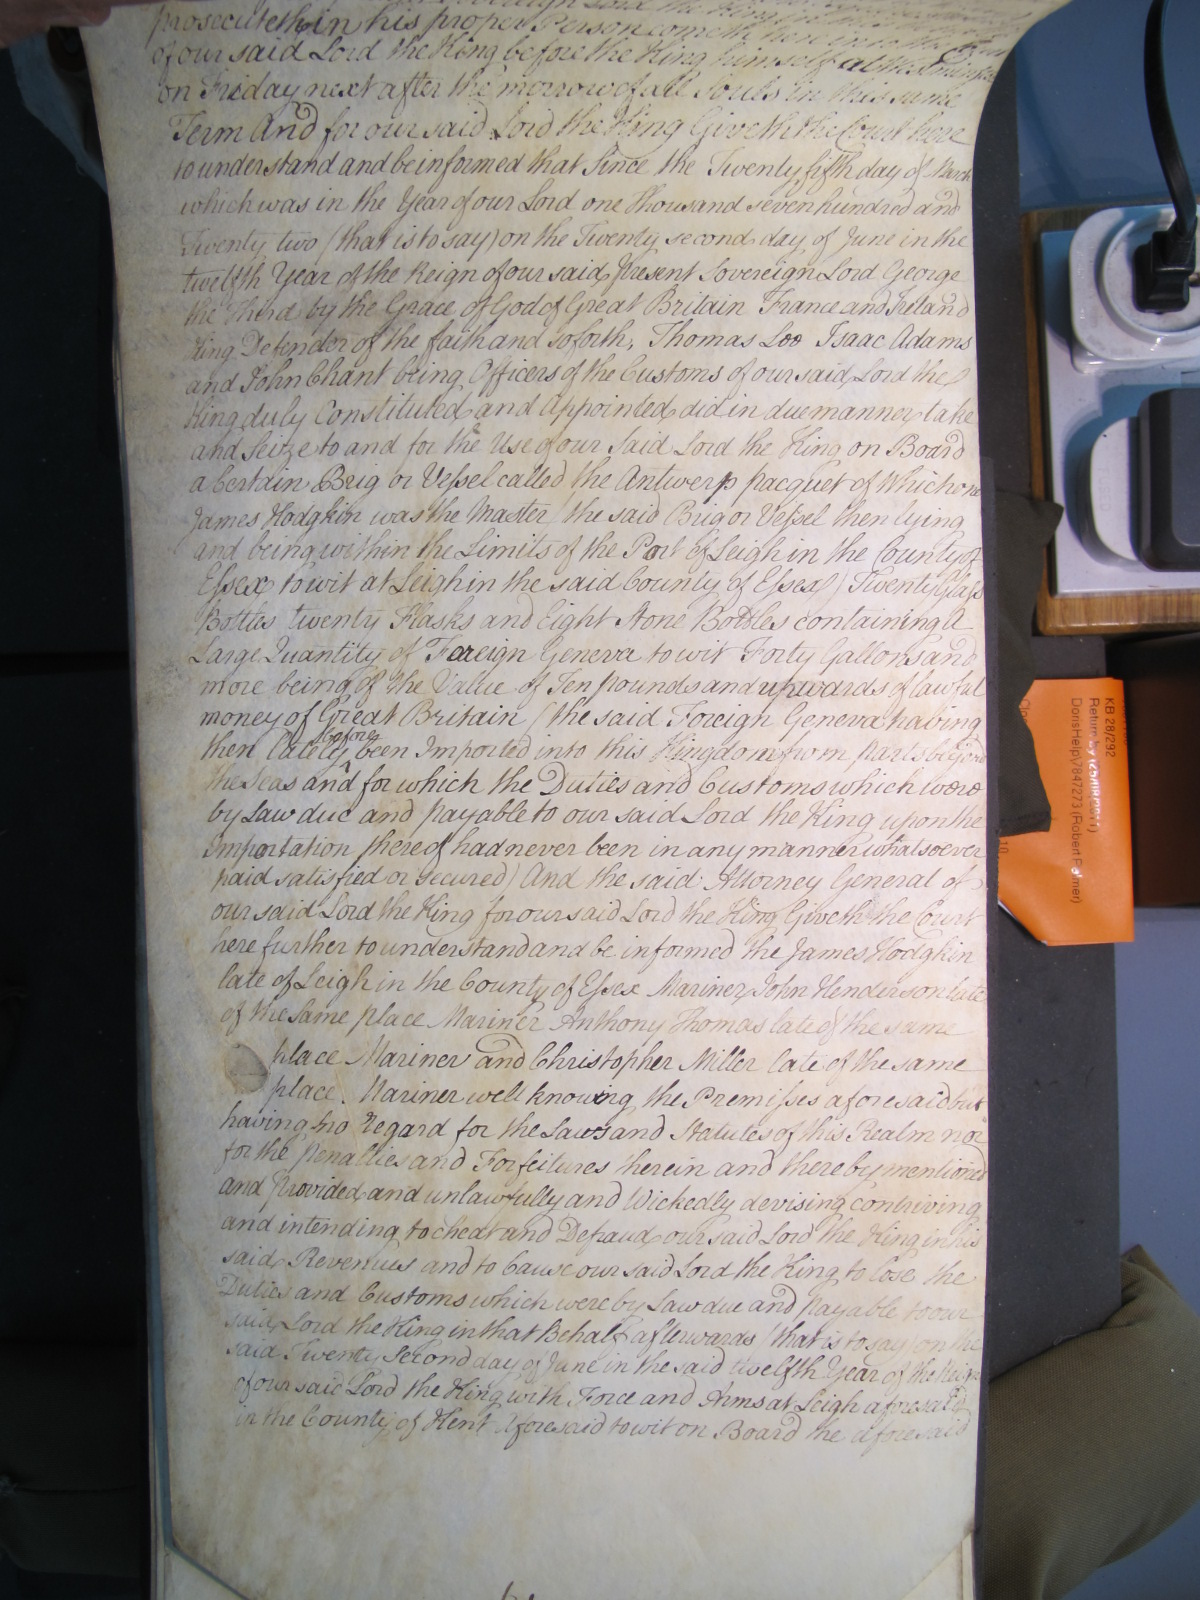 prosecuteth in his proper Person cometh here into the Court
of our said Lord the King before the King himself at Westminster
on Friday next after the morrow of all Souls in this same
Term And for our said Lord the King Giveth the Court here
to understand and be informed that Since the Twenty fifth day of March
which was in the Year of our Lord one thousand seven hundred and
Twenty two (that is to say) on the Twenty second day of June in the
twelfth Year of the Reign of our said present Sovereign Lord George
the Third by the Grace of God of Great Britain France and Ireland
King Defender of the faith and so forth, Thomas Loo Isaac Adams
and John Chant being Officers of the Customs of our said Lord the
King duly Constituted and Appointed did in due manner take
and Seize to and for the Use of our Said Lord the King on Board
a Certain Brig or Vessel called the Antwerp pacquet of Which one
James Hodgkin was the Master (the said Brig or Vessel then lying
and being within the Limits of the Port of Leigh in the County of
Essex to wit at Leigh in the said County of Essex) Twenty Glass
Bottles twenty Flasks and Eight Stone Bottles containing a
Large Quantity of Foreign Geneva to wit Forty Gallons and
more being of the Value of Ten pounds and upwards of lawful
money of Great Britain (the said Foreign Geneva having
then lately before been Imported into this Kingdom from parts beyond
the Seas and for which the Duties and Customs which were
by Law due and payable to our said Lord the King upon the
Importation thereof had never been in any manner whatsoever
paid satisfied or secured) And the said Attorney General of
our said Lord the King for our said Lord the King Giveth the Court
here further to understand and be informed the James Hodgkin
late of Leigh in the County of Essex Mariner John Henderson late
of the Same place Mariner Anthony Thomas late of the same
place Mariner and Christopher Miller late of the same
place Mariner well knowing the Premisses aforesaid but
having no Regard for the Laws and Statutes of this Realm nor
for the penalties and Forfeitures therein and thereby mentioned
and provided and unlawfully and Wickedly devising contriving
and intending to cheat and Defraud our said Lord the King in his
said Revenues and to Cause our said Lord the King to lose the
Duties and Customs which were by Law due and payable to our
said Lord the King in that Behalf afterwards (that is to say) on the
said Twenty Second day of June in the said twelfth Year of the Reign
of our said Lord the King with Force and Arms at Leigh aforesaid
in the County of Kent Aforesaid to wit on Board the aforesaid
KB 28/292
Return by (25/08/2011)
DorisHelp\7847273 (Robert Palmer)